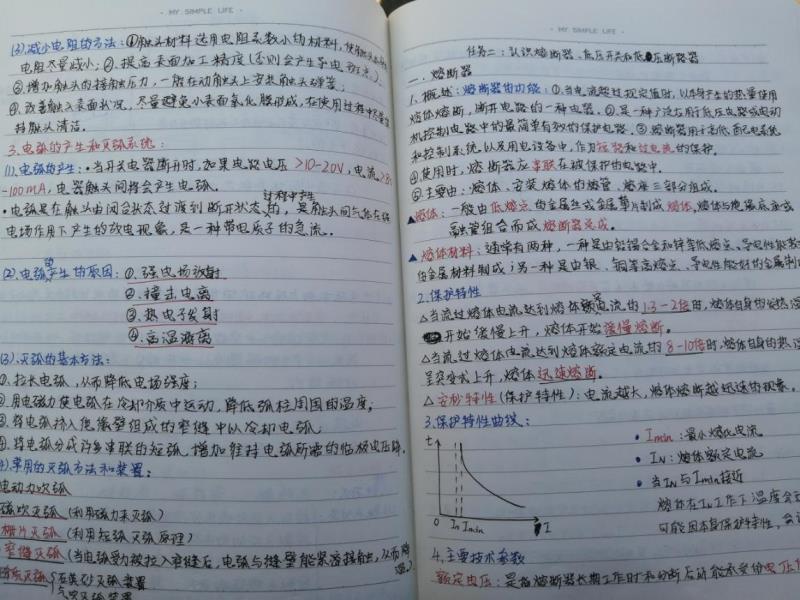 · MY SIMPLE LIFE ·
(3).减小电阻的方法：①触头材料选用电阻系数小的材料，使触头本身的
电阻尽量减小；②.提高表面加工精度（否则会产生导电斑点）；
③.增加触头的接触压力，一般在动触头上安装触头弹簧；
④.改善触头表面状况，尽量避免小表面氧化膜形成，在使用过程中尽量保
持触头清洁。
3.电弧的产生和灭弧系统：
(1).电弧的产生：·当开关电器断开时，如果电路电压>10-20V，电流>80
-100mA，电器触头间将会产生电弧。
·电弧是在触头由闭合状态过渡到断开状态过程中产生的，是触头间气体在强
电场作用下产生的放电现象，是一种带电质子的急流。
(2).电弧产生的原因：①.强电场放射
②.撞击电离
③.热电子发射
④.高温游离
(3).灭弧的基本方法：
①.拉长电弧，从而降低电场强度；
②.用电磁力使电弧在冷却介质中运动，降低弧柱周围的温度；
③.将电弧挤入绝缘壁组成的窄缝中以冷却电弧；
④.将电弧分成许多串联的短弧，增加维持电弧所需的临极电压降。
4).常用的灭弧方法和装置：
电动力吹弧
磁吹灭弧（利用磁力来灭弧）
栅片灭弧（利用短弧灭弧原理）
窄缝灭弧（当电弧受力被拉入窄缝后，电弧与缝壁能紧密接触，从而降温。）
石英砂灭弧装置
气吹灭弧装置
· MY SIMPLE LIFE ·
任务二：认识熔断器、低压开关和低压断路器
一.熔断器
1.概述：熔断器的功能：①.当电流超过规定值时，以本身产生的热量使
熔体熔断，断开电路的一种电器。②.是一种广泛应用于低压电路或电动
机控制电路中的最简单有效的保护电器。③.熔断器用于高低配电系统
和控制系统以及用电设备中，作为短路和过电流的保护。
④使用时，熔断器应串联在被保护的电路中。
⑤.主要由：熔体、安装熔体的熔管、熔座三部分组成。
▲熔体：一般由低熔点的金属丝或金属薄片制成熔体，熔体与绝缘底座或
融管组合而成熔断器完成。
▲熔体材料：通常有两种，一种是由铅锡合金和锌等低熔点、导电性能差
的金属材料制成；另一种是由银、铜等高熔点、导电性能好的金属制
2.保护特性
△当流过熔体电流达到熔体额定电流的1.3-2倍时，熔体自身的发热温
开始缓慢上升，熔体开始缓慢熔断。
△当流过熔体电流达到熔体额定电流的8-10倍时，熔体自身的热温
呈突变式上升，熔体迅速熔断。
△安秒特性（保护特性）：电流越大，熔体熔断越迅速的现象。
3.保护特性曲线：
t
0 In Imin I
• Imin：最小熔化电流
• IN：熔体额定电流
• 当IN与Imin接近
熔体在IN工作下温度会
可能因本身保护特性，会
4.主要技术参数
额定电压：是指熔断器长期工作时和分断后所能承受的电压